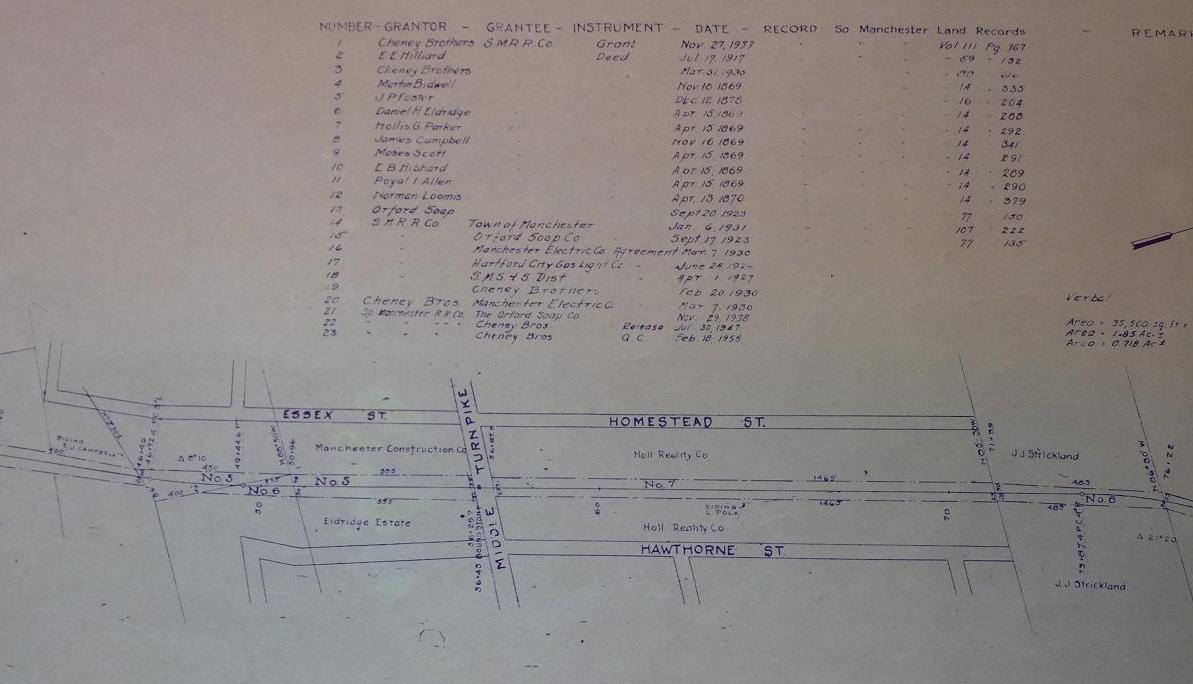 NUMBER - GRANTOR - GRANTEE - INSTRUMENT - DATE - RECORD: So Manchester Land Records - REMAR
1 Cheney Brothers S.M.R.R Co. Grant Nov. 27, 1937 Vol 111 Pg 367
2 E E Hilliard Deed Jul. 17, 1917 69 132
3 Cheney Brothers Mar. 31, 1930
4 Martin Bidwell Nov 16 1869 14 335
5 J P Foster DEC. 12, 1878 16 204
6 Daniel H Eldridge Apr 15, 1869 14 288
7 Hollis G Parker Apr 15 1869 14 292
8 James Campbell Nov 16 1869 14 341
9 Moses Scott Apr 15, 1869 14 291
10 E B Hibbard Apr 15, 1869 14 289
11 Royal I Allen Apr. 15, 1869 14 290
12 Norman Loomis Apr. 13 1870 14 379
13 Orford Soap Sept 20 1923 77 130
14 S M R R Co Town of Manchester Jan 6, 1931 107 222
15 Orford Soap Co Sept. 17, 1923 77 135
16 Manchester Electric Co Agreement Mar. 7, 1930
17 Hartford City Gas Light Co June 24
18 S.M.S & S Dist Apr 1 1927
19 Cheney Brothers Feb 20 1930
20 Cheney Bros Manchester Electric C Mar 7, 1930
21 So. Manchester R.R Co. The Orford Soap Co Nov. 29, 1938
22 Cheney Bros Release Jul. 30, 1947
23 Cheney Bros Q.C Feb. 18, 1955
Verbal
Area = 35,500 sq. ft ±
Area = 1.85 Ac ±
Area = 0.718 Ac ±
ESSEX ST.
HOMESTEAD ST.
MIDDLE TURNPIKE
Manchester Construction Co
Holl Reality Co
J.J Strickland
Δ 8°10
SIDING
No. 5
No. 6
No. 5
No. 7
No. 8
400
555
1465
483
555
1465
483
SIDING
L. POLA
Eldridge Estate
Holl Reality Co
50
60
70
HAWTHORNE ST.
Δ 21°20
J.J Strickland